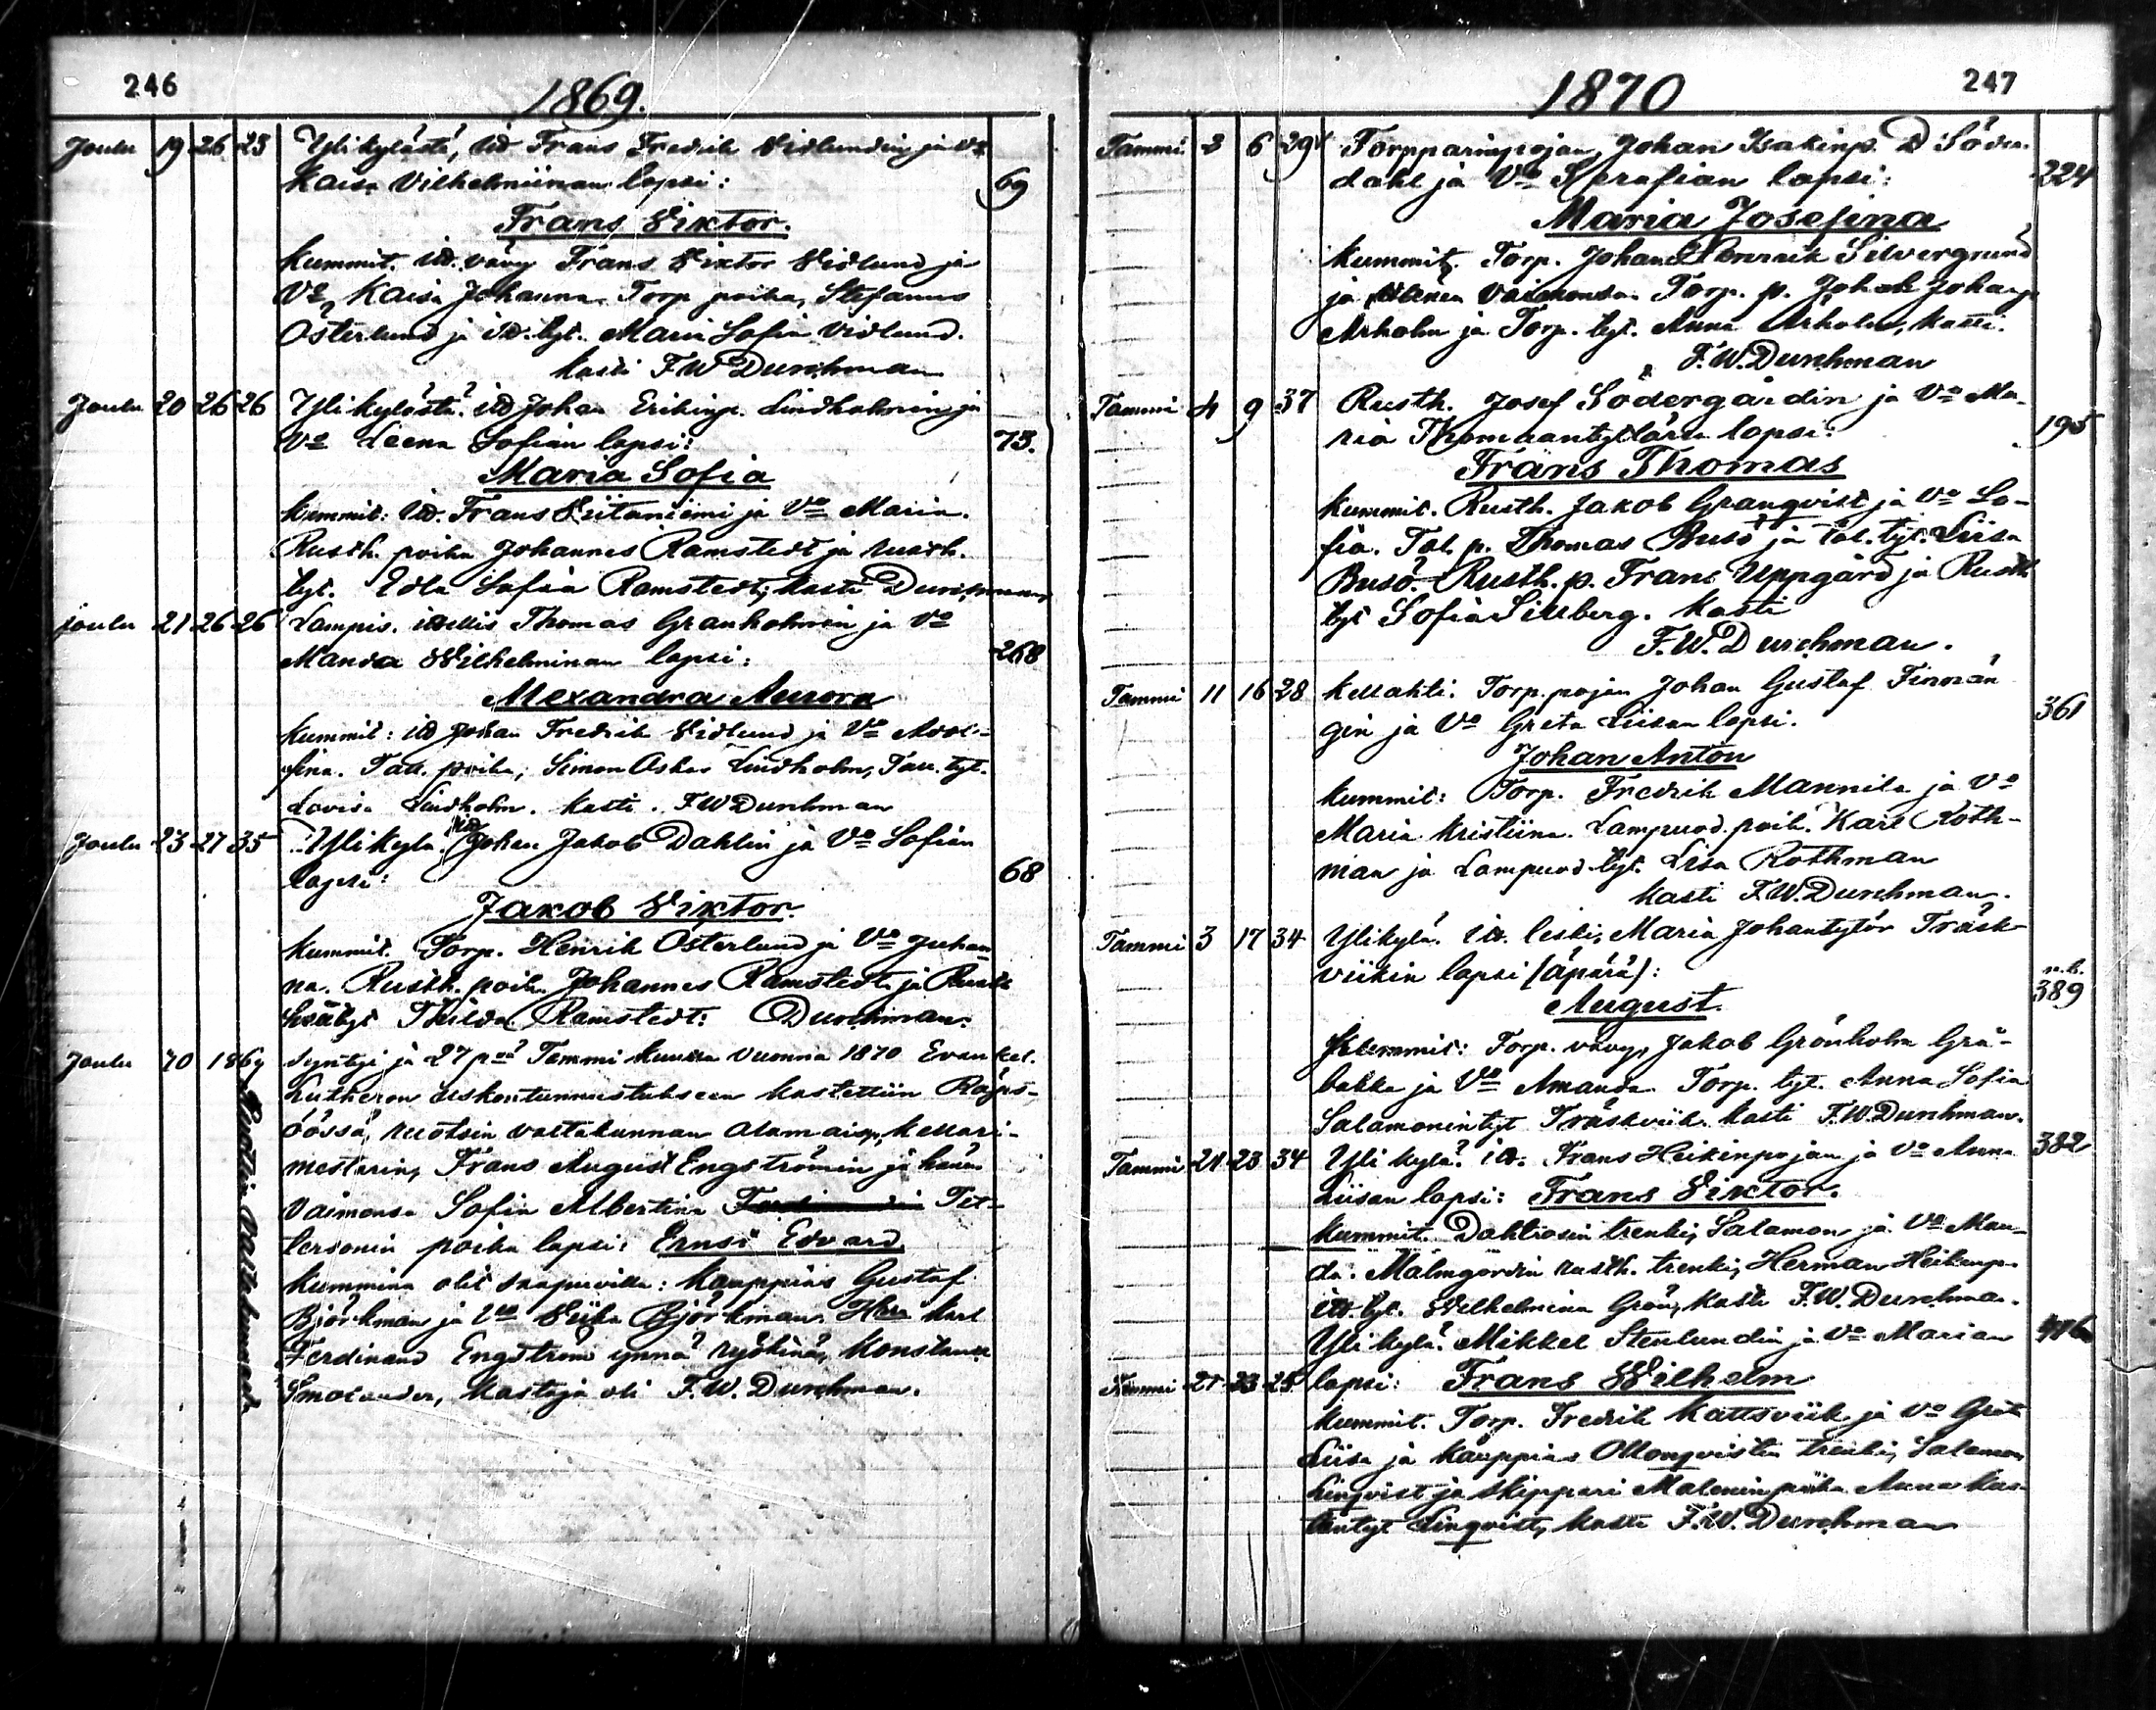 246
1869.
Joulu 19 26 23 Ylikylästä, itd Frans Fredrik Widlundin ja Vo
Kaisa Vilhelmiinan lapsi: 69
Frans Viktor.
Kummit. itd. vävy Frans Viktor Widlund ja
Vo Kaisa Johanna, Torp poika, Stefanus
Österlund ja itd. tyt. Maria Sofia Vidlund.
kasti F W Durchman
Joulu 20 26 26 Ylikylästä. itd Johan Erikinp. Lindholmin ja
Vo Leena Sofian lapsi: 73.
Maria Sofia
Kummit: itd. Frans Viitaniemi ja Vo Maria.
Rusth. poika Johannes Ramstedt ja rusth.
tyt. Edla Sofia Ramstedt; kasti Durchman
joulu 21 26 26 Lampis. itsellis Thomas Granholmin ja Vo
Manda Wilhelminan lapsi: 268
Alexandra Aurora
Kummit: itd Johan Fredrik Vidlund ja Vo Adol-
fina. Tal. poika, Simon Oskar Lindholm, Tal. tyt.
Lovisa Lindholm. kasti. F W Durchman
Joulu 23 27 35 Ylikylä. itd Johan Jakob Dahlin ja Vo Sofian
lapsi: 68
Jakob Viktor.
Kummit. Torp. Henrik Österlund ja Vo Juhan-
na. Rusth. poika Johannes Ramstedt ja Rusth
tyt Thilda Ramstedt: Durchman.
Joulu 10 1869 Syntyi ja 27 pnä Tammi kuussa vuonna 1870 Evankel.
Lutheron uskontunnustukseen kastettiin Räfsö-
össä, ruotsin valtakunnan alamaisen, kellari-
mestarin, Frans August Engströmin ja hänen
Vaimonsa Sofia Albertina Pet-
tersonin poika lapsi: Ernst Edvard.
Ruotsin Valtakunnasta
Kummina olit saapuvilla: Kauppias Gustaf
Björkman ja Vo Björkman. Herra Karl
Ferdinand Engström ynnä ryökinä, Konstance
Smolander, kastaja oli F. W. Durchman.
1870
247
Tammi 2 6 29 Torpparinpojan, Johan Isakinp. Söder-
dahl ja Vo Serafian lapsi: 224
Maria Josefina
Kummit. Torp. Johan Henrik Silvergrund
ja Helena Vaimonsa Torp. p. Johan Johanp
Arholm ja Torp. tyt. Anna Arholm, Kasti.
F. W. Durchman
Tammi 4 9 37 Rusth. Josef Södergårdin ja Vo Ma-
ria Thomaantyttären lapsi: 195
Frans Thomas
Kummit. Rusth. Jakob Granqvist ja Vo So-
fia. Tal. p. Thomas Busö ja tal. tyt. Liisa
Busö. Rusth. p. Frans Uppgård ja Rusth
tyt Sofia Sillberg. Kasti
F. W. Durchman.
Tammi 11 16 28 Kellahti. Torp. pojan Johan Gustaf Finnän-
gin ja Vo Greta Liisan lapsi. 361
Johan Anton
Kummit: Torp. Fredrik Mannila ja Vo
Maria Kristiina. Lampuod. poik. Karl Roth-
man ja Lampuod. tyt. Lisa Rothman
Kasti F. W. Durchman.
Tammi 3 17 34 Ylikylä. itd. leski, Maria Johantytär Träsk-
viikin lapsi (äpärä): n.k. 389
August.
Kummit: Torp. vävy, Jakob Grönholm Grå-
bakka ja Vo Amanda. Torp. tyt. Anna Sofia
Salamonintyt Träskviik. kasti F. W. Durchman.
Tammi 21 23 34 Yli kylä. itd. Frans Heikinpojan ja Vo Anna 382
Liisan lapsi: Frans Viktor.
Kummit. Dahlrosin trenki, Salamon ja Vo Man-
da. Malmgordin rusth. trenki, Herman Heikinp.
itd. tyt. Wilhelmina Grön, kasti F. W. Durchman.
Yli kylä. Mikkel Stenlundin ja Vo Marian
Tammi 21 23 25 lapsi: Frans Wilhelm
Kummit. Torp. Fredrik Kattsviik ja Vo Greta
Liisa ja Kauppias trenki, Salamon
Linqvist ja Skippari Malenin piika Anna
Linqvist, kasti F. W. Durchman